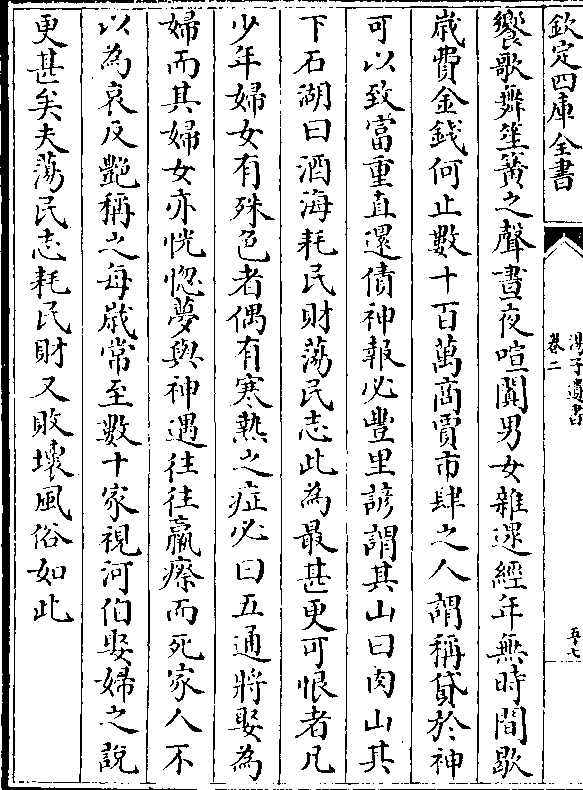 欽定四庫全書
湯子遺書
卷二
五十七
饗歌舞笙簧之聲晝夜喧闐男女雜遝經年無時間歇
歲費金錢何止數十百萬商賈市肆之人謂稱貸於神
可以致富重直還債神報必豐里諺謂其山曰肉山其
下石湖曰酒海耗民財蕩民志此為最甚更可恨者凡
少年婦女有殊色者偶有寒熱之症必曰五通將娶為
婦而其婦女亦恍惚夢與神遇往往羸瘵而死家人不
以為哀反艷稱之每歲常至數十家視河伯娶婦之說
更甚矣夫蕩民志耗民財又敗壞風俗如此